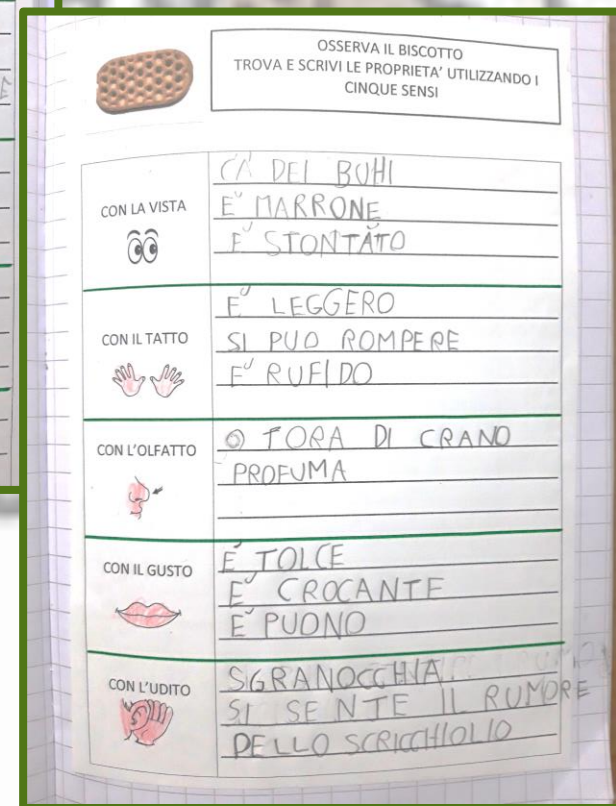 OSSERVA IL BISCOTTO
TROVA E SCRIVI LE PROPRIETA' UTILIZZANDO I
CINQUE SENSI
CON LA VISTA
CA' DEI BUHI
E' MARRONE
E' STONTATO
CON IL TATTO
E' LEGGERO
SI PUO ROMPERE
E' RUFIDO
CON L'OLFATTO
O TORA DI CRANO
PROFUMA
CON IL GUSTO
E' TOLCE
E' CROCANTE
E' PUONO
CON L'UDITO
SGRANOCCHIA
SI SENTE IL RUMORE
DELLO SCRICCHIOLIO